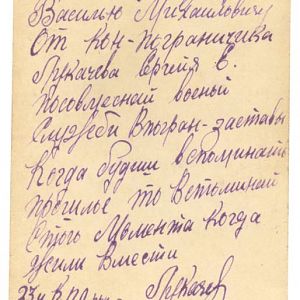 Василью Михаиловичу
От кон-пограничика
Лукачева Сергея В.
посовмесной военой
Службы В погран-заставы
Когда будиш вспоминать
прошлье то Вспоминай
Стого Момента когда
жили Вмести
Лукачев